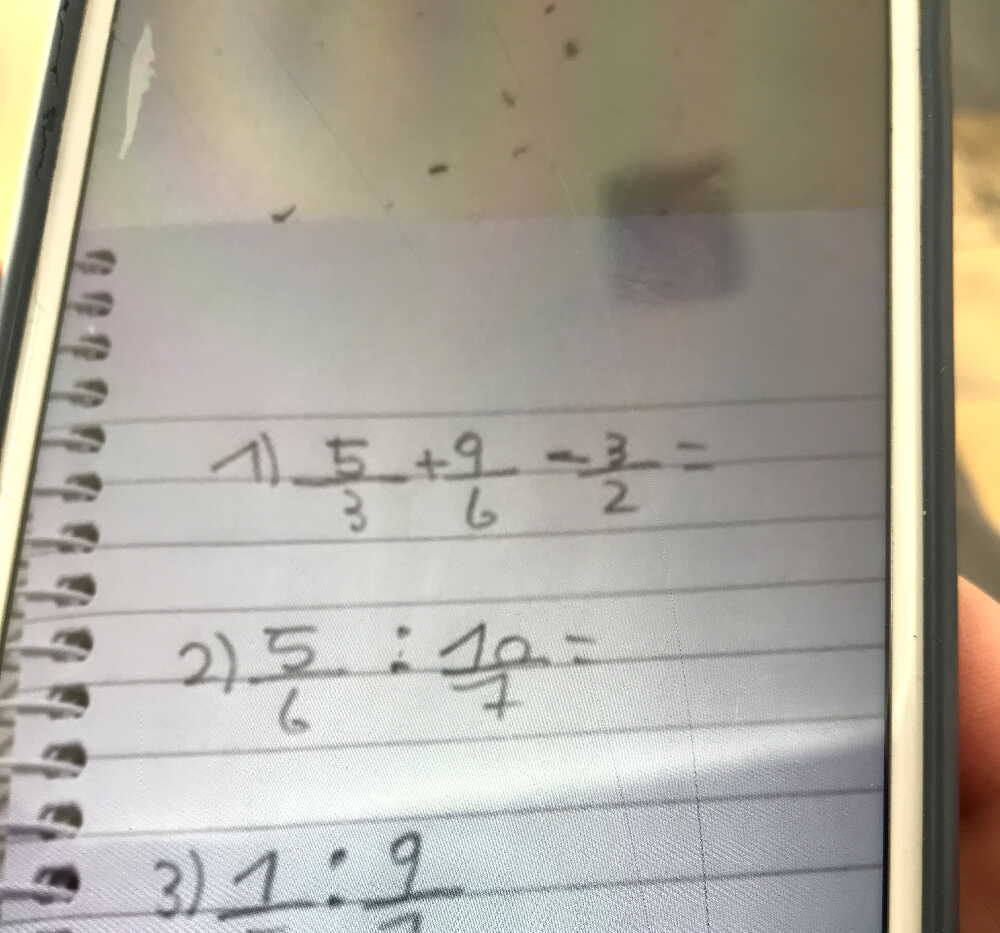 1) 5/3 + 9/6 - 3/2 =
2) 5/6 : 10/7 =
3) 1 : 9